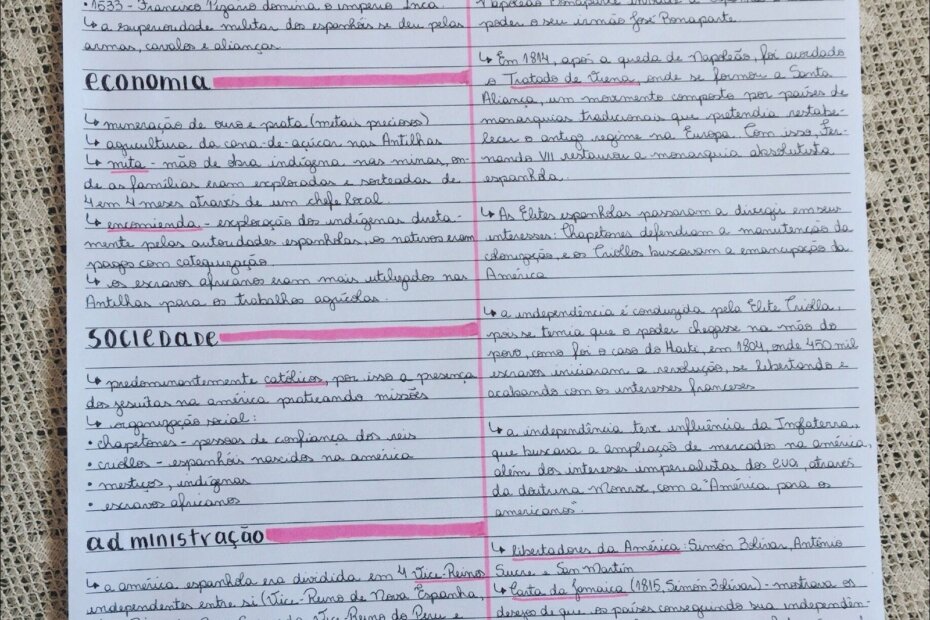 • 1533 - Francisco Pizarro domina o império Inca.
↳ a superioridade militar dos espanhóis se deu pelas
armas, cavalos e alianças
economia
↳ mineração de ouro e prata (metais preciosos)
↳ agricultura da cana-de-açúcar nas Antilhas
↳ mita - mão de obra indígena nas minas, on-
de as famílias eram exploradas e sorteadas de
4 em 4 meses através de um chefe local.
↳ encomienda - exploração dos indígenas direta-
mente pelas autoridades espanholas, os nativos eram
pagos com catequização.
↳ os escravos africanos eram mais utilizados nas
Antilhas para os trabalhos agrícolas.
sociedade
↳ predominantemente católicos, por isso a presença
dos jesuítas na américa praticando missões
↳ organização social:
• chapetones - pessoas de confiança dos reis
• criollos - espanhóis nascidos na américa
• mestiços, indígenas
• escravos africanos
administração
↳ a américa espanhola era dividida em 4 Vice-Reinos
independentes entre si (Vice-Reino de Nova Espanha,
Vice-Reino do Peru e
poder o seu irmão José Bonaparte
↳ Em 1814, após a queda de Napoleão, foi acordado
o Tratado de Viena, onde se formou a Santa
Aliança, um movimento composto por países de
monarquias tradicionais que pretendia restabe-
lecer o antigo regime na Europa. Com isso, Fer-
nando VII restaurou a monarquia absolutista
espanhola.
↳ As Elites espanholas passaram a divergir em seus
interesses: Chapetones defendiam a manutenção da
colonização, e os Criollos buscavam a emancipação da
América
↳ a independência é conduzida pela Elite Criolla,
pois se temia que o poder chegasse na mão do
povo, como foi o caso do Haiti, em 1804, onde 450 mil
escravos iniciaram a revolução, se libertando e
acabando com os interesses franceses
↳ a independência teve influência da Inglaterra,
que buscava a ampliação de mercados na américa,
além dos interesses imperialistas dos EUA, através
da doutrina Monroe, com a "América para os
americanos".
↳ libertadores da América: Simón Bolívar, Antônio
Sucre e San Martín
↳ Carta da Jamaica (1815, Simón Bolívar) - mostrava os
desejo de que os países conseguindo sua independên-